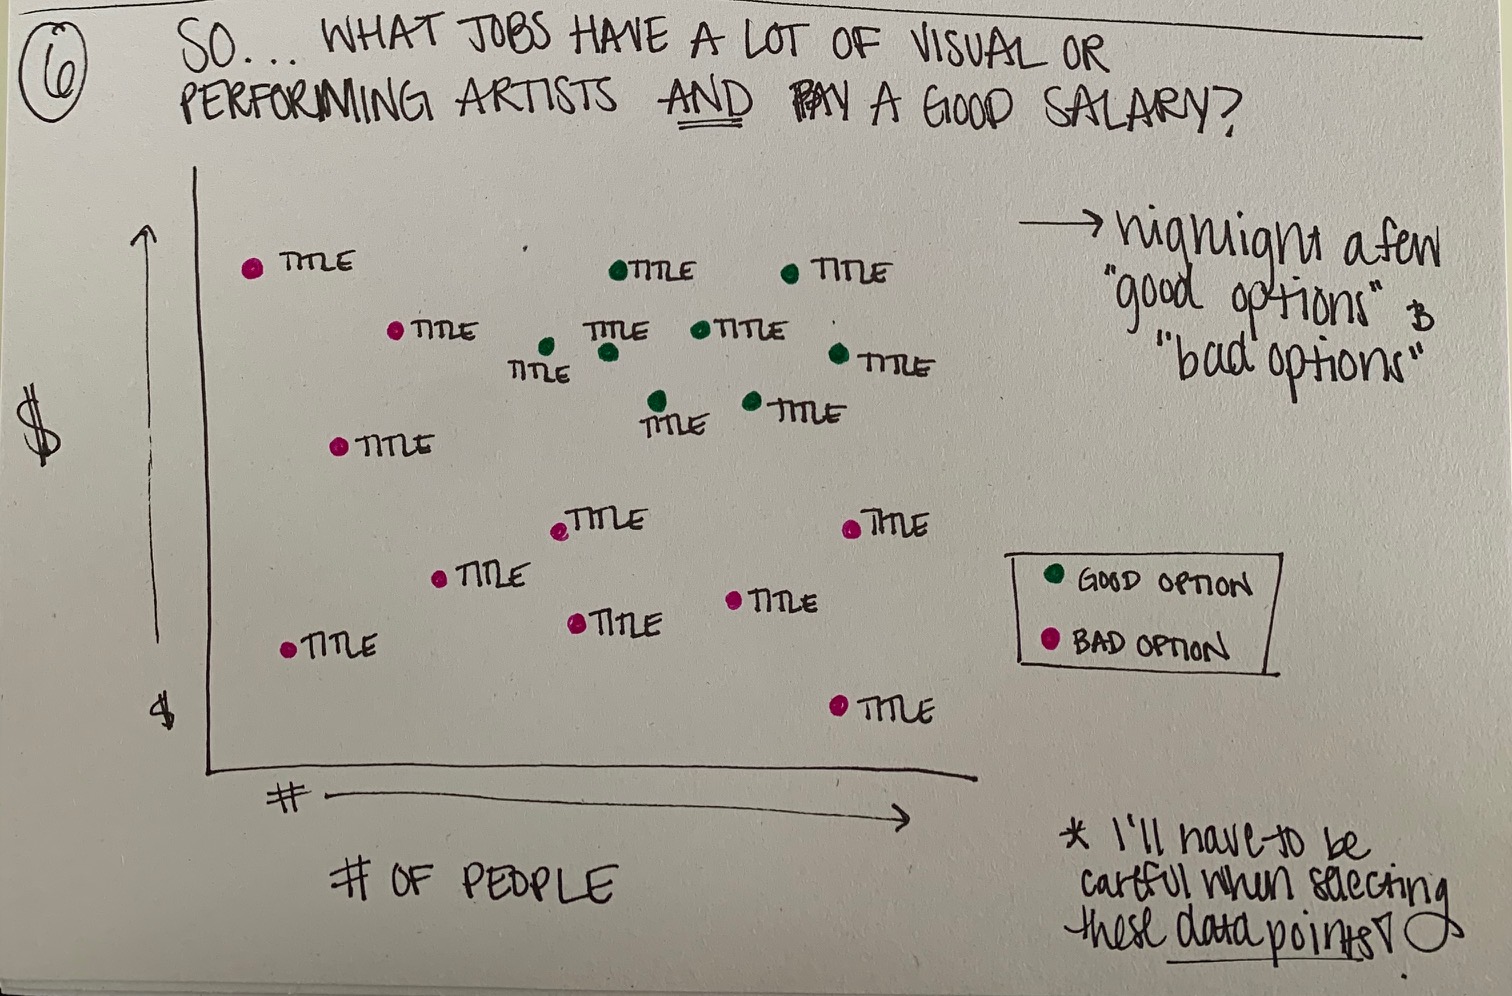 6
SO... WHAT JOBS HAVE A LOT OF VISUAL OR
PERFORMING ARTISTS AND PAY A GOOD SALARY?
→ highlight a few
"good options" &
"bad options"
TITLE
TITLE
TITLE
TITLE
TITLE
TITLE
TITLE
TITLE
TITLE
TITLE
TITLE
TITLE
TITLE
TITLE
TITLE
TITLE
TITLE
TITLE
$
$
#
# OF PEOPLE
GOOD OPTION
BAD OPTION
* I'll have to be
careful when selecting
these data points